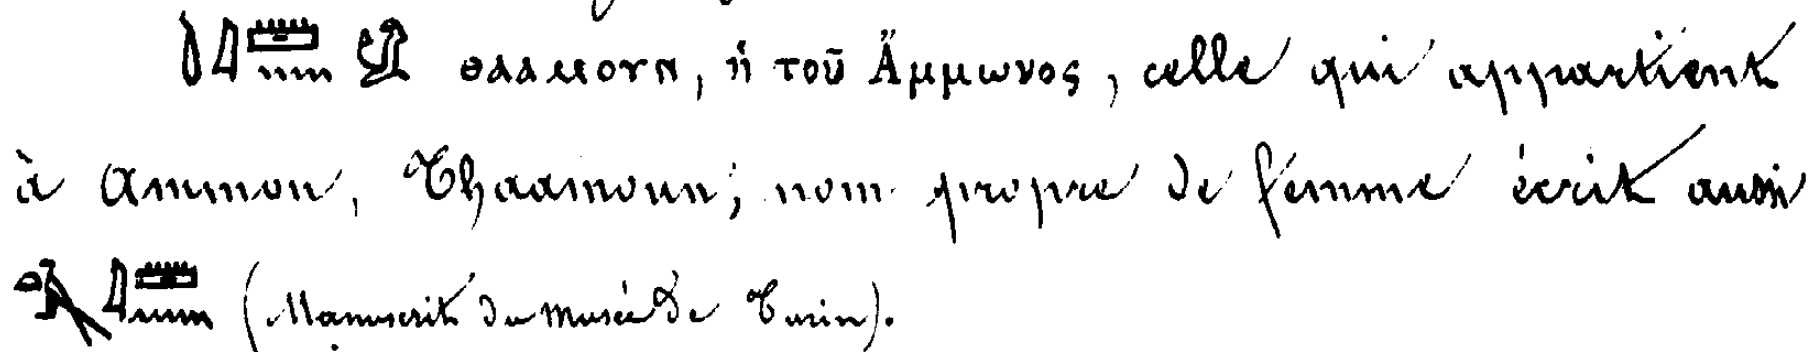 ⲑⲁⲁⲙⲟⲩⲛ, ἡ τοῦ Ἄμμωνος, celle qui appartient
à Ammon, Thaamoun; nom propre de femme écrit aussi
(Manuscrit du musée de Turin).